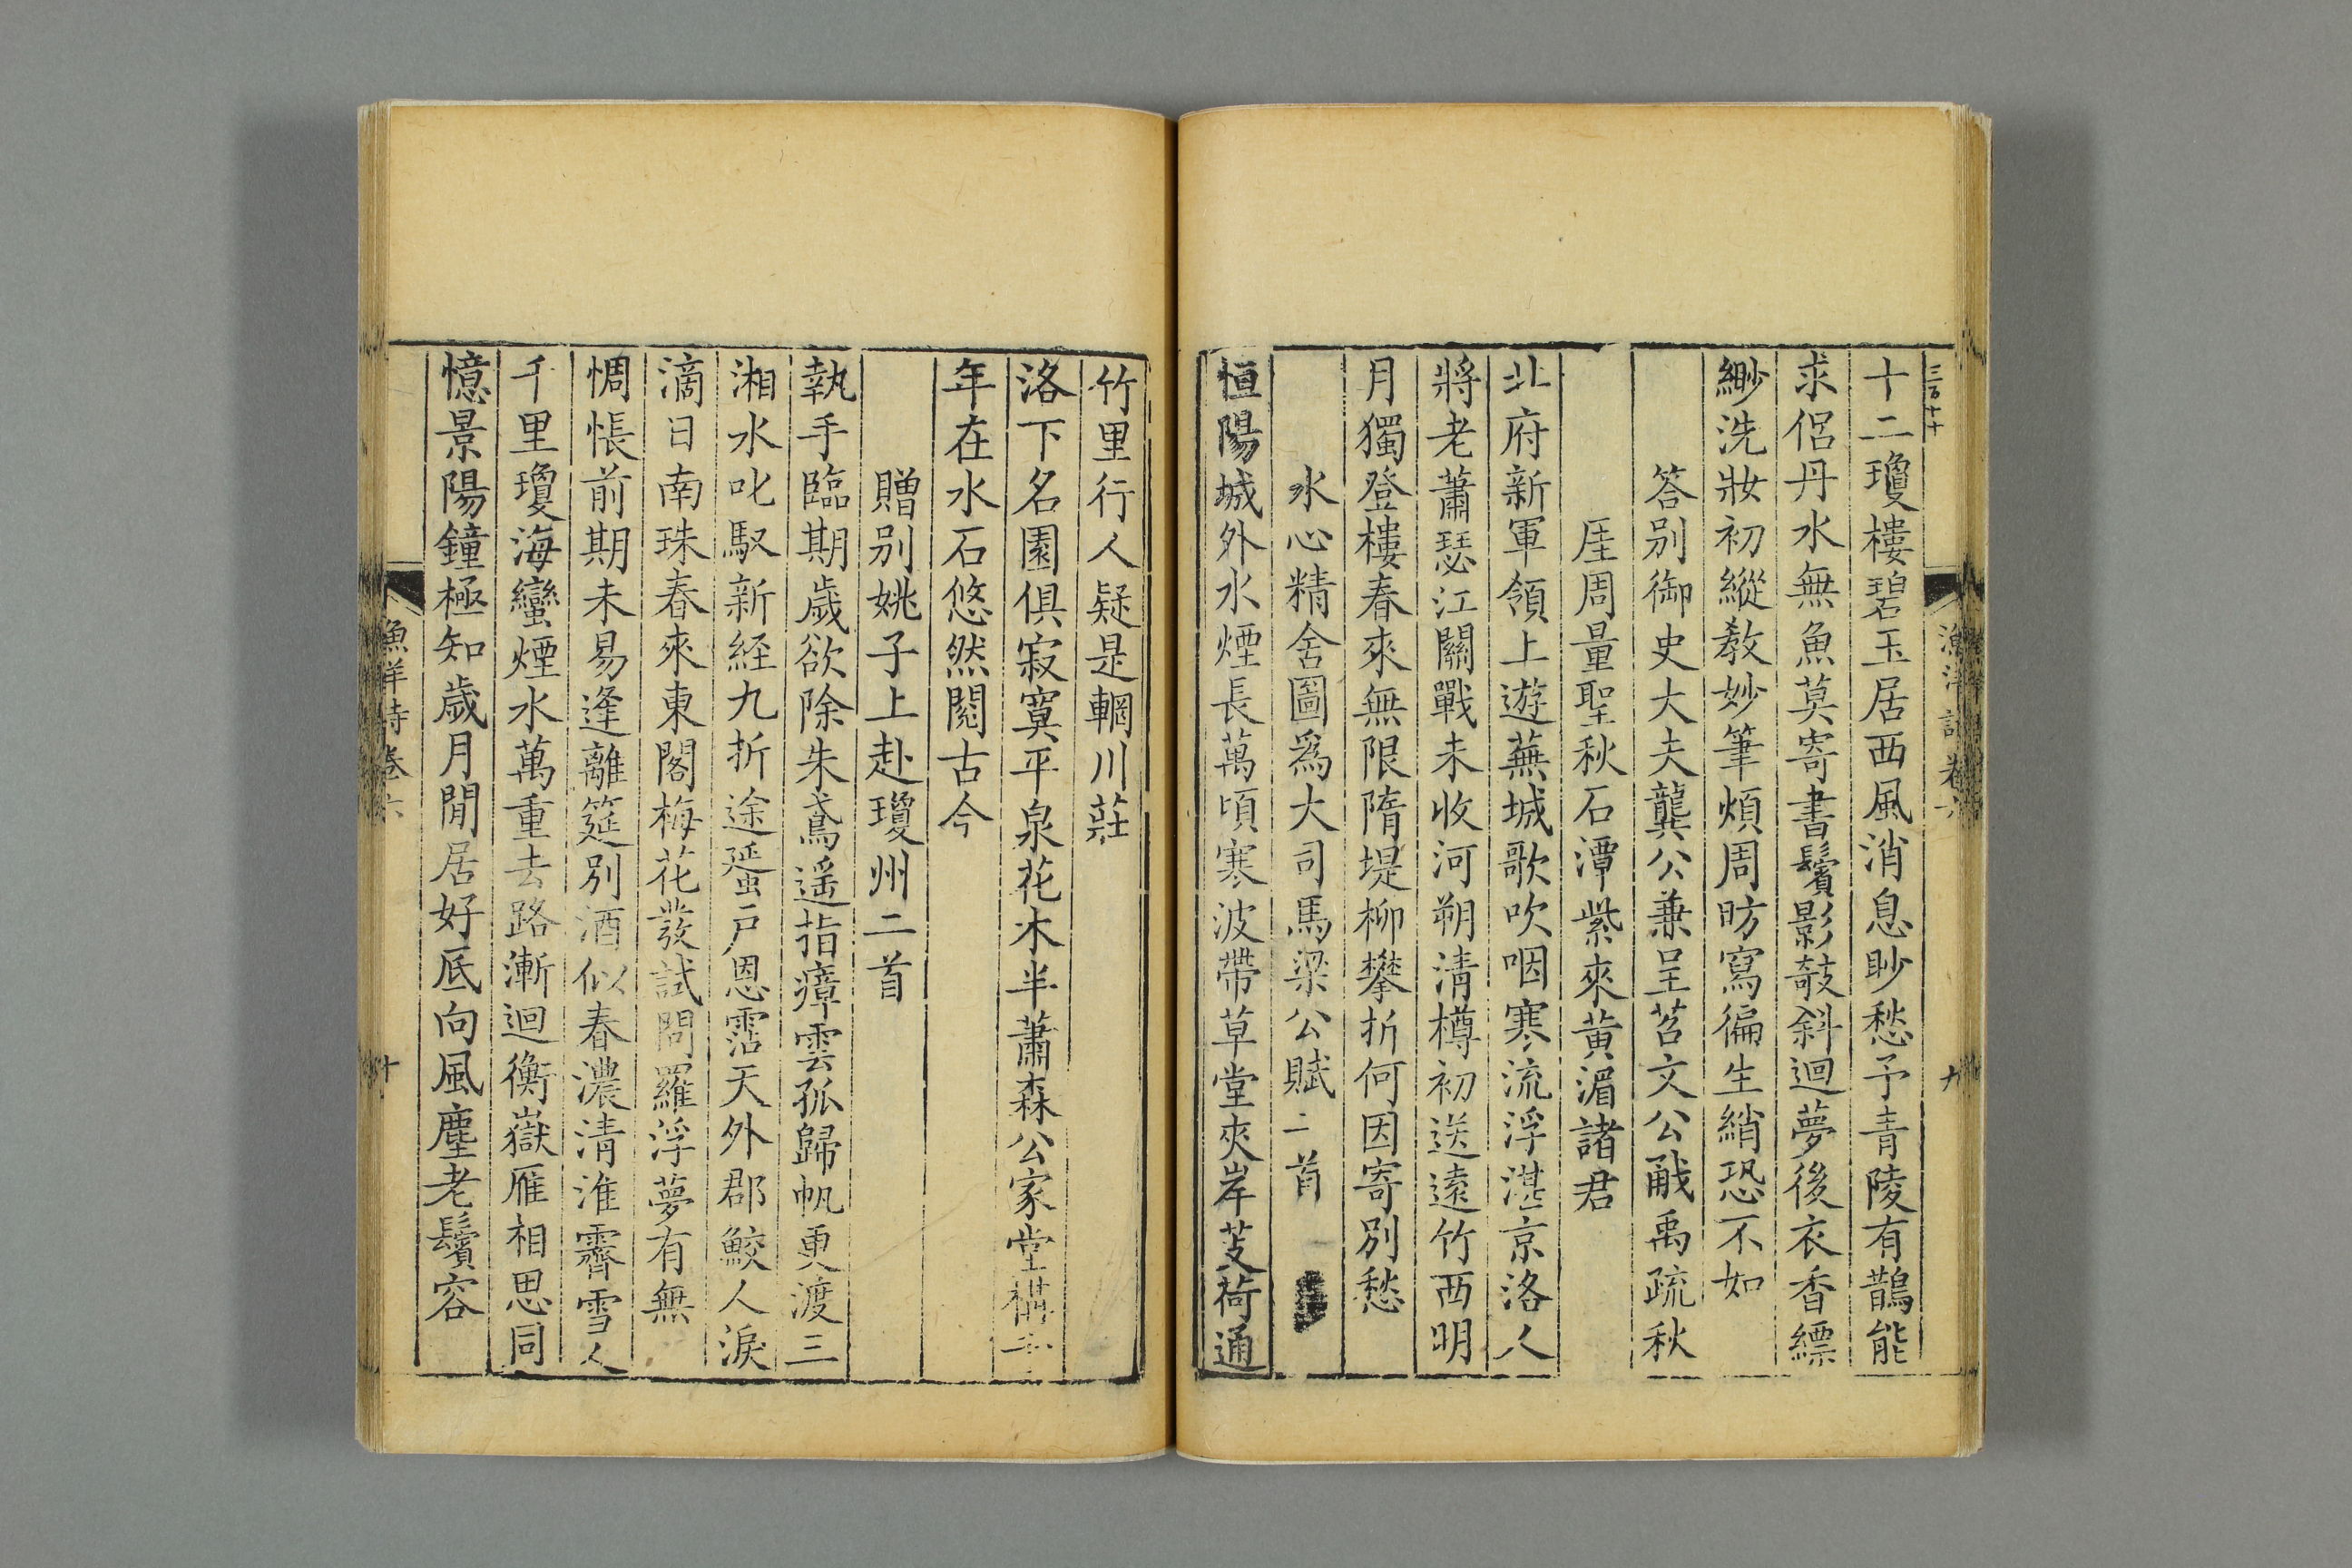 十二瓊樓碧玉居西風消息眇愁予青陵有鵲能
求侶丹水無魚莫寄書鬢影敧斜迴夢後衣香縹
緲洗妝初縱教妙筆煩周昉寫徧生綃恐不如
答別御史大夫龔公兼呈苕文公㦸禹疏秋
厓周量聖秋石潭紫來黃湄諸君
北府新軍領上遊蕪城歌吹咽寒流浮湛京洛人
將老蕭瑟江關戰未收河朔清樽初送遠竹西明
月獨登樓春來無限隋堤柳攀折何因寄別愁
水心精舍圖爲大司馬梁公賦二首
恒陽城外水煙長萬頃寒波帶草堂夾岸芰荷通
竹里行人疑是輞川莊
洛下名園俱寂寞平泉花木半蕭森公家堂構千
年在水石悠然閱古今
贈別姚子上赴瓊州二首
執手臨期歲欲除朱鳶遥指瘴雲孤歸帆更渡三
湘水叱馭新經九折途蜑戶恩霑天外郡鮫人淚
滴日南珠春來東閣梅花發試問羅浮夢有無
惆悵前期未易逢離筵別酒似春濃清淮霽雪人
千里瓊海蠻煙水萬重去路漸迴衡嶽雁相思同
憶景陽鐘極知歲月閒居好底向風塵老鬢容
漁洋詩卷六
十